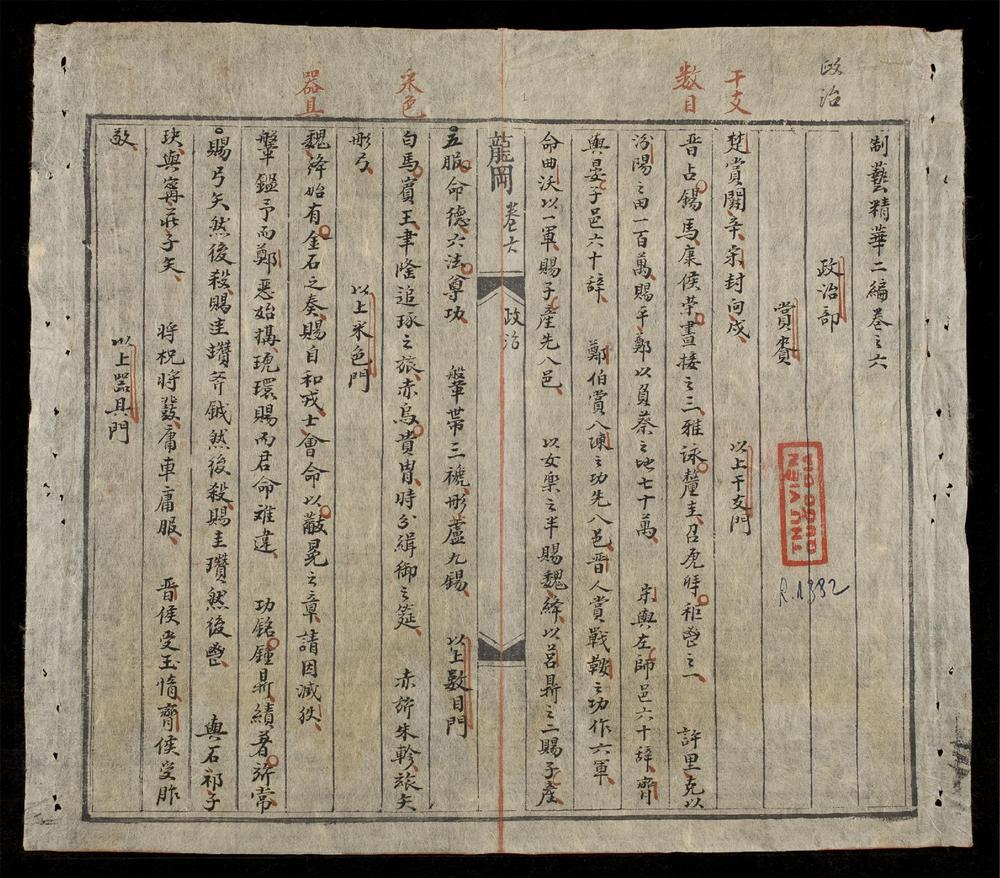 政治
干支
数目
采色
器具
制藝精華二編卷之六
政治部
賞賚
楚賞鬪辛宋封向戍　以上干支門
晋占錫馬康侯荣晝接之三雅詠釐圭召虎
秬鬯之一　許里克以
汾陽之田一百萬賜平鄭以負蔡之地七十萬　宋與左師邑六十辞齊
與晏子邑六十辞　鄭伯賞入陳之功先八邑晋人賞戰鞍之功作六軍
命曲沃以一軍賜子產先八邑　以女樂之半賜魏絳以莒鼎之二賜子產
龍岡　卷之六　政治
五服命德六法尊功　鞶帶三褫彤蘆九錫　以上数目門
白馬賓王聿隆追琢之旅赤烏貴胄時分緝御之筵　赤旂朱軫旅矢
彤弓　以上采色門
魏絳始有金石之奏賜自和戎士會命以黻冕之章請因滅狄
鞶鑑予而鄭惡始搆瑰環賜而君命难違　功銘鍾鼎績著旂常
賜弓矢然後殺賜圭瓚斧鉞然後殺賜圭瓚然後鬯　與石祁子
玦與甯莊子矢　将祝将裸庸車庸服　晋侯受玉惰齊侯受胙
敬　以上器具門
THƯ VIỆN
QUỐC GIA
R.1332